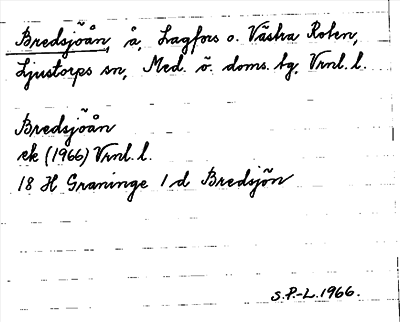 Bredsjöån, å, Lagfors o. Västra Roten,
Ljustorps sn, Med. ö. doms. tg. Vrnl. l.
Bredsjöån
ek (1966) Vrnl. l.
18 H Graninge 1 d Bredsjön
S.P.-L. 1966.